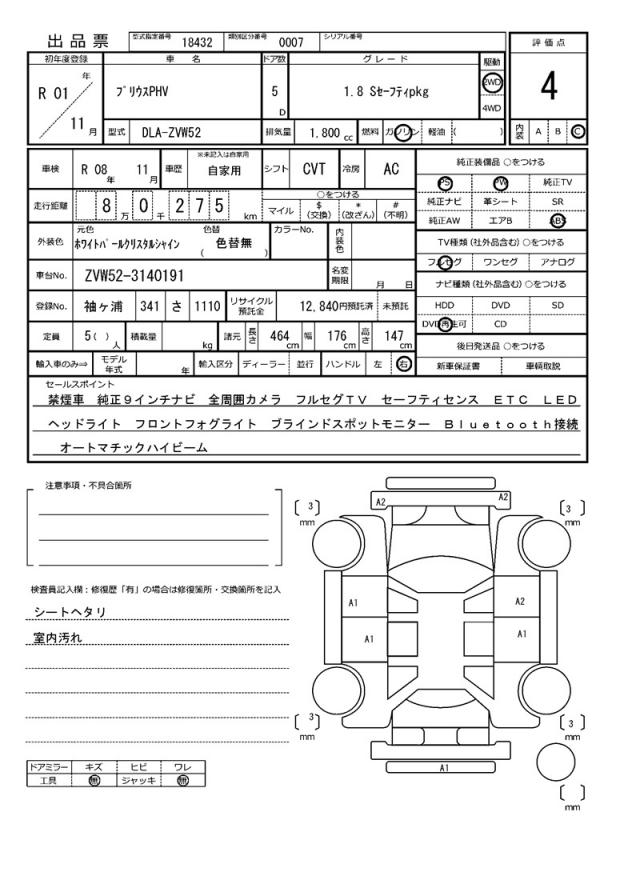 出品票 型式指定番号 18432 類別区分番号 0007 シリアル番号
評価点
4
内装 A B C
初年度登録 車名 ドア数 グレード 駆動
R 01 年 11 月
プリウスPHV 5 D 1.8 Sセーフティpkg 2WD
4WD
型式 DLA-ZVW52 排気量 1.800 cc 燃料 ガソリン 軽油 ( )
車検 R 08 年 11 月 車歴 ※未記入は自家用 自家用 シフト CVT 冷房 AC
走行距離 8 万 0 千 2 7 5 km
○をつける
マイル $ (交換) * (改ざん) # (不明)
外装色 元色 ホワイトパールクリスタルシャイン 色替 ( 色替無 ) カラーNo. 内装色
車台No. ZVW52-3140191 名変期限 月 日
登録No. 袖ヶ浦 341 さ 1110 リサイクル預託金 12,840円預託済 未預託
定員 5 ( ) 人 積載量 kg 諸元 長さ 464 cm 幅 176 cm 高さ 147 cm
輸入車のみ⇒ モデル年式 年 輸入区分 ディーラー 並行 ハンドル 左 右
純正装備品 ○をつける
PS PW 純正TV
純正ナビ 革シート SR
純正AW エアB ABS
TV種類 (社外品含む) ○をつける
フルセグ ワンセグ アナログ
ナビ種類 (社外品含む) ○をつける
HDD DVD SD
DVD再生可 CD
後日発送品 ○をつける
新車保証書 車輌取説
セールスポイント
禁煙車 純正9インチナビ 全周囲カメラ フルセグTV セーフティセンス ETC LED
ヘッドライト フロントフォグライト ブラインドスポットモニター Bluetooth接続
オートマチックハイビーム
注意事項・不具合箇所
検査員記入欄：修復歴「有」の場合は修復箇所・交換箇所を記入
シートヘタリ
室内汚れ
ドアミラー キズ ヒビ ワレ
工具 無 ジャッキ 無
[ 3 ] mm
A2 A2
[ 3 ] mm
A1 A2
A1 A1
[ 3 ] mm
[ 3 ] mm
A1
[ ] mm